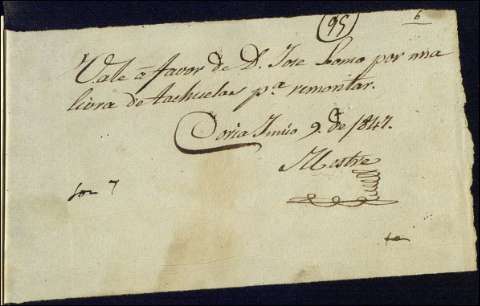 95
6
Vale a favor de D. Jose Lomo por una
libra de tachuelas pª remontar.
Coria Junio 9. de 1847.
Mestre
son 7